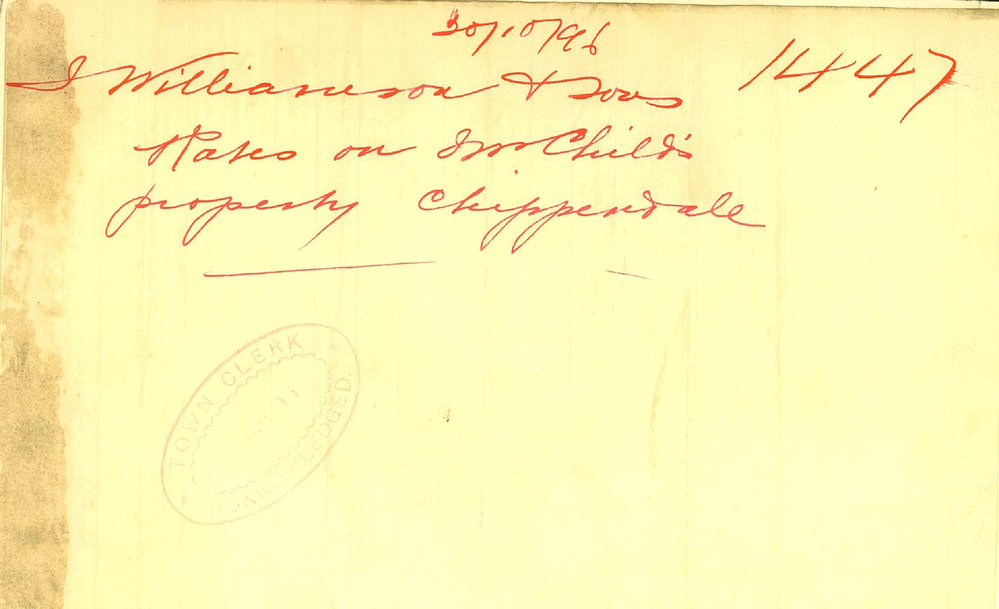 30/10/96
J Williamson & Sons 1447
Rates on Child's
property Chippendale
TOWN CLERK
ACKNOWLEDGED.